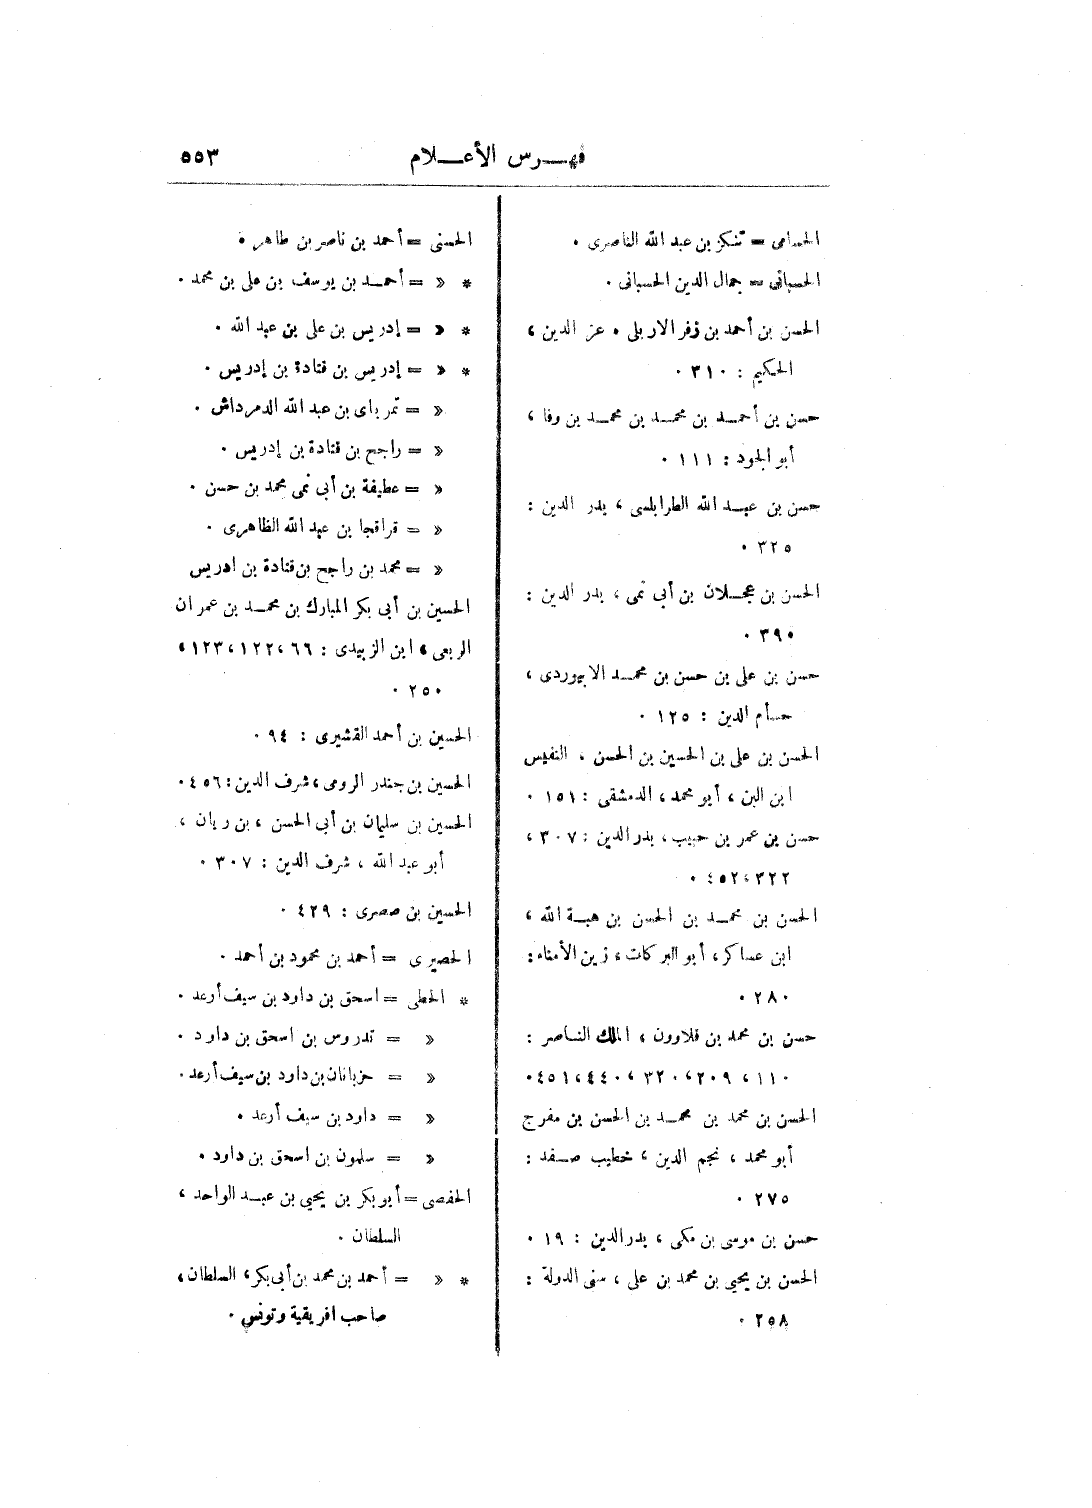 فهـــرس الأعـــلام
٥٥٣
الحسامى = تنكز بن عبد الله الناصرى .
الحسبانى = جمال الدين الحسبانى .
الحسن بن أحمد بن زفر الاربلى ، عز الدين ،
الحكيم : ٣١٠ .
حسن بن أحمـد بن محمـد بن محمـد بن وفا ،
أبو الجود : ١١١ .
حسن بن عبـد الله الطرابلسى ، بدر الدين :
٣٢٥ .
الحسن بن عجـلان بن أبي نمى ، بدر الدين :
٣٩٠ .
حسن بن على بن حسن بن محمـد الابيوردى ،
حسام الدين : ١٢٥ .
الحسن بن على بن الحسين بن الحسن ، النفيس
ابن البن ، أبو محمد ، الدمشقى : ١٥١ .
حسن بن عمر بن حبيب ، بدر الدين : ٣٠٧ ،
٣٢٢ ، ٤٥٢ .
الحسن بن محمـد بن الحسن بن هبـة الله ،
ابن عساكر ، أبو البركات ، زين الأمناء :
٢٨٠ .
حسن بن محمد بن قلاوون ، الملك الناصر :
١١٠ ، ٢٠٩ ، ٣٢٠ ، ٤٤٠ ، ٤٥١ .
الحسن بن محمد بن محمـد بن الحسن بن مفرج
أبو محمد ، نجم الدين ، خطيب صـفد :
٢٧٥ .
حسن بن موسى بن مكى ، بدر الدين : ١٩ .
الحسن بن يحيى بن محمد بن على ، سنى الدولة :
٢٥٨ .
الحسنى = أحمد بن ناصر بن طاهر .
* » = أحمـد بن يوسف بن على بن محمد .
* » = إدريس بن على بن عبد الله .
* » = إدريس بن قتادة بن إدريس .
» = تمر باى بن عبد الله الدمرداش .
» = راجح بن قتادة بن إدريس .
» = عطيفة بن أبى نمى محمد بن حسن .
» = قراقجا بن عبد الله الظاهرى .
» = محمد بن راجح بن قتادة بن ادريس
الحسين بن أبى بكر المبارك بن محمـد بن عمران
الربعى ، ابن الزبيدى : ٦٦ ، ١٢٢ ، ١٢٣ ،
٢٥٠ .
الحسين بن أحمد القشيرى : ٩٤ .
الحسين بن جندر الرومى ، شرف الدين : ٤٥٦ .
الحسين بن سليمان بن أبى الحسن ، بن ريان ،
أبو عبد الله ، شرف الدين : ٣٠٧ .
الحسين بن صصرى : ٤٢٩ .
الحصيرى = أحمد بن محمود بن أحمد .
* الحطى = اسحق بن داود بن سيف أرعد .
» = تدروس بن اسحق بن داود .
» = حزبانان بن داود بن سيف أرعد .
» = داود بن سيف أرعد .
» = سلمون بن اسحق بن داود .
الحفصى = أبو بكر بن يحيى بن عبـد الواحد ،
السلطان .
* » = أحمد بن محمد بن أبى بكر ، السلطان ،
صاحب افريقية وتونس .